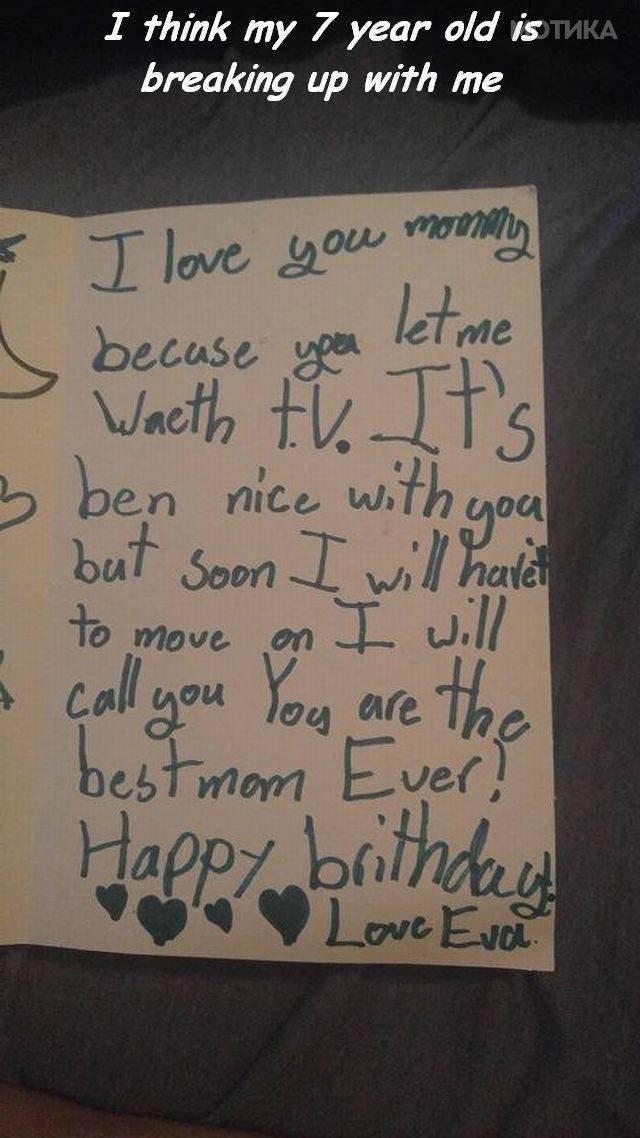 I think my 7 year old is
ОТИКА
breaking up with me
I love you mommy
becuse you let me
Wacth t.V. It's
ben nice with you
but soon I will
to move on I will
call you You are the
best mom Ever!
Happy brithday!
Love Eva.